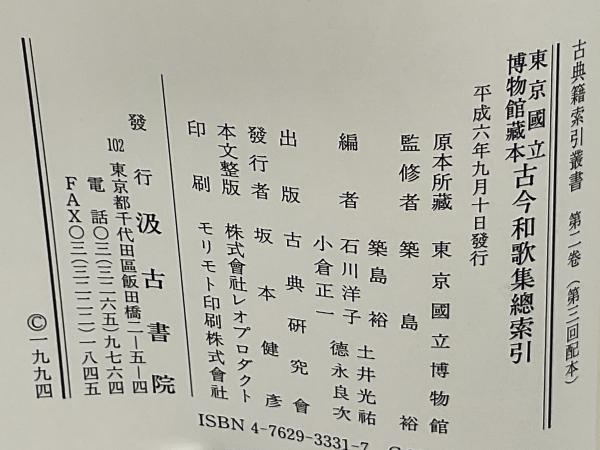 古典籍索引叢書 第二卷（第三回配本）
東京國立博物館藏本 古今和歌集總索引
平成六年九月十日發行
原本所藏 東京國立博物館
監修者 築島裕
編者 築島裕 土井光祐
石川洋子 德永良次
小倉正一
出版 古典研究會
發行者 坂本健彦
本文整版 株式會社レオプロダクト
印刷 モリモト印刷株式會社
發行 汲古書院
102 東京都千代田區飯田橋二ー五ー四
電話〇三（三二六五）九七六四
FAX〇三（三二二二）一八四五
©一九九四
ISBN 4-7629-3331-7